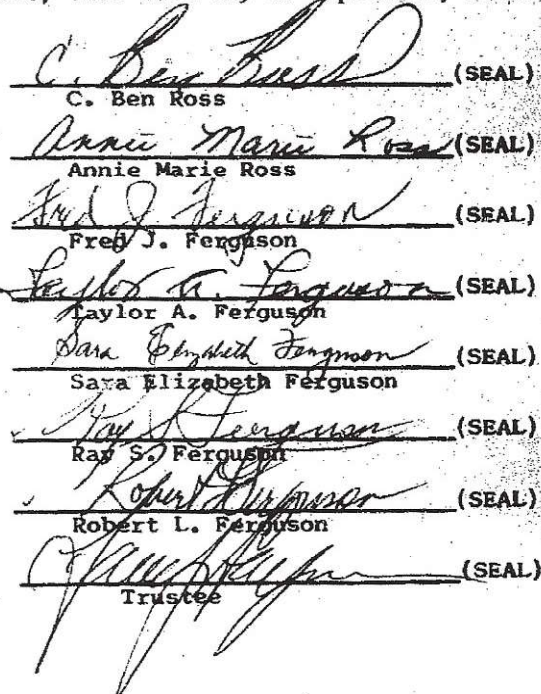 C. Ben Ross (SEAL)
C. Ben Ross
Annie Marie Ross (SEAL)
Annie Marie Ross
Fred J. Ferguson (SEAL)
Fred J. Ferguson
Taylor A. Ferguson (SEAL)
Taylor A. Ferguson
Sara Elizabeth Ferguson (SEAL)
Sara Elizabeth Ferguson
Ray S. Ferguson (SEAL)
Ray S. Ferguson
Robert L. Ferguson (SEAL)
Robert L. Ferguson
(SEAL)
Trustee